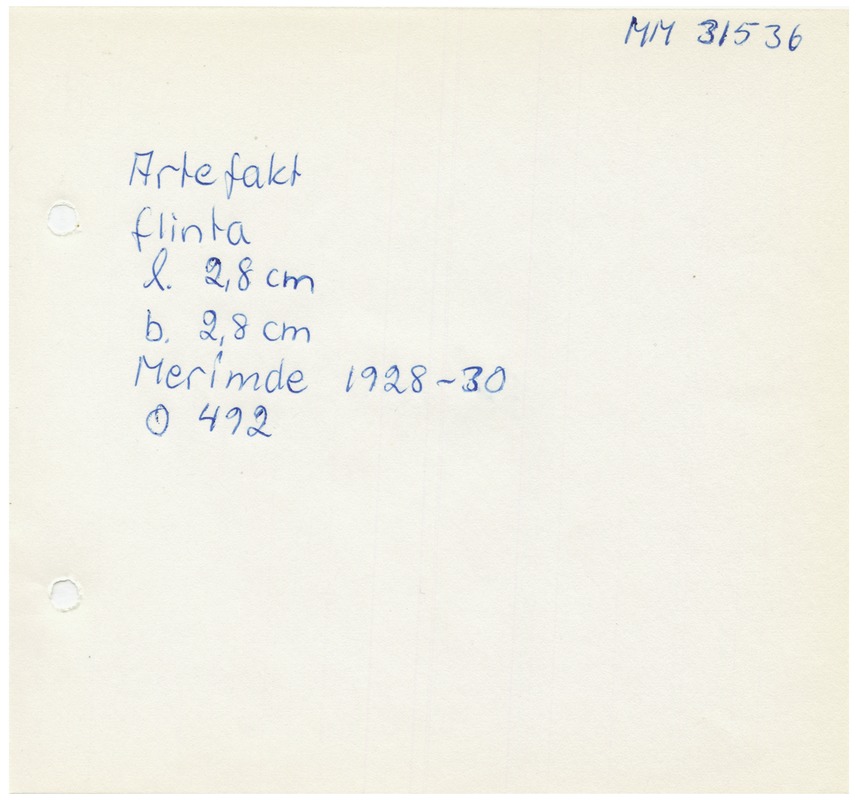 MM 31536
Artefakt
flinta
l. 2,8 cm
b. 2,8 cm
Merimde 1928-30
① 492